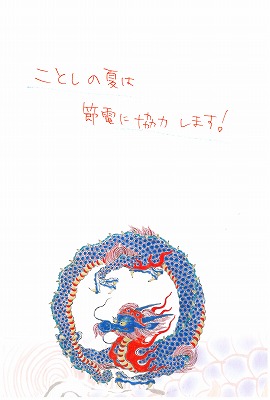 ことしの夏は
節電に協力します!